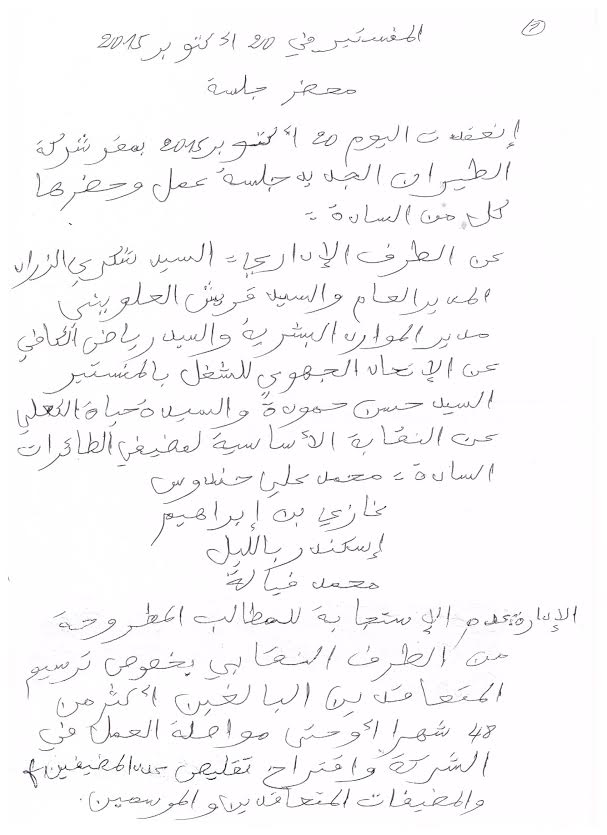 ②
المنستير في 20 أكتوبر 2015
محضر جلسة
إنعقدت اليوم 20 أكتوبر 2015 بمقر شركة
الطيران الجديد جلسة عمل وحضرها
كل من السادة =
عن الطرف الإداري = السيد شكري الزراد
المدير العام والسيد قريش العلويني
مدير الموارد البشرية والسيد رياض الكافي
عن الإتحاد الجهوي للشغل بالمنستير
السيد حسن حمودة والسيدة حياة الكعلي
عن النقابة الأساسية لمضيفي الطائرات
السادة = محمد علي حندوس
غازي بن إبراهيم
إسكندر بالليل
محمد فيالة
الإدارة: عدم الإستجابة للمطالب المطروحة
من الطرف النقابي بخصوص ترسيم
المتعاقدين البالغين أكثر من
48 شهرا أو حتى مواصلة العمل في
الشركة واقتراح تقليص عدد المضيفين
والمضيفات المتعاقدين والموسمين.